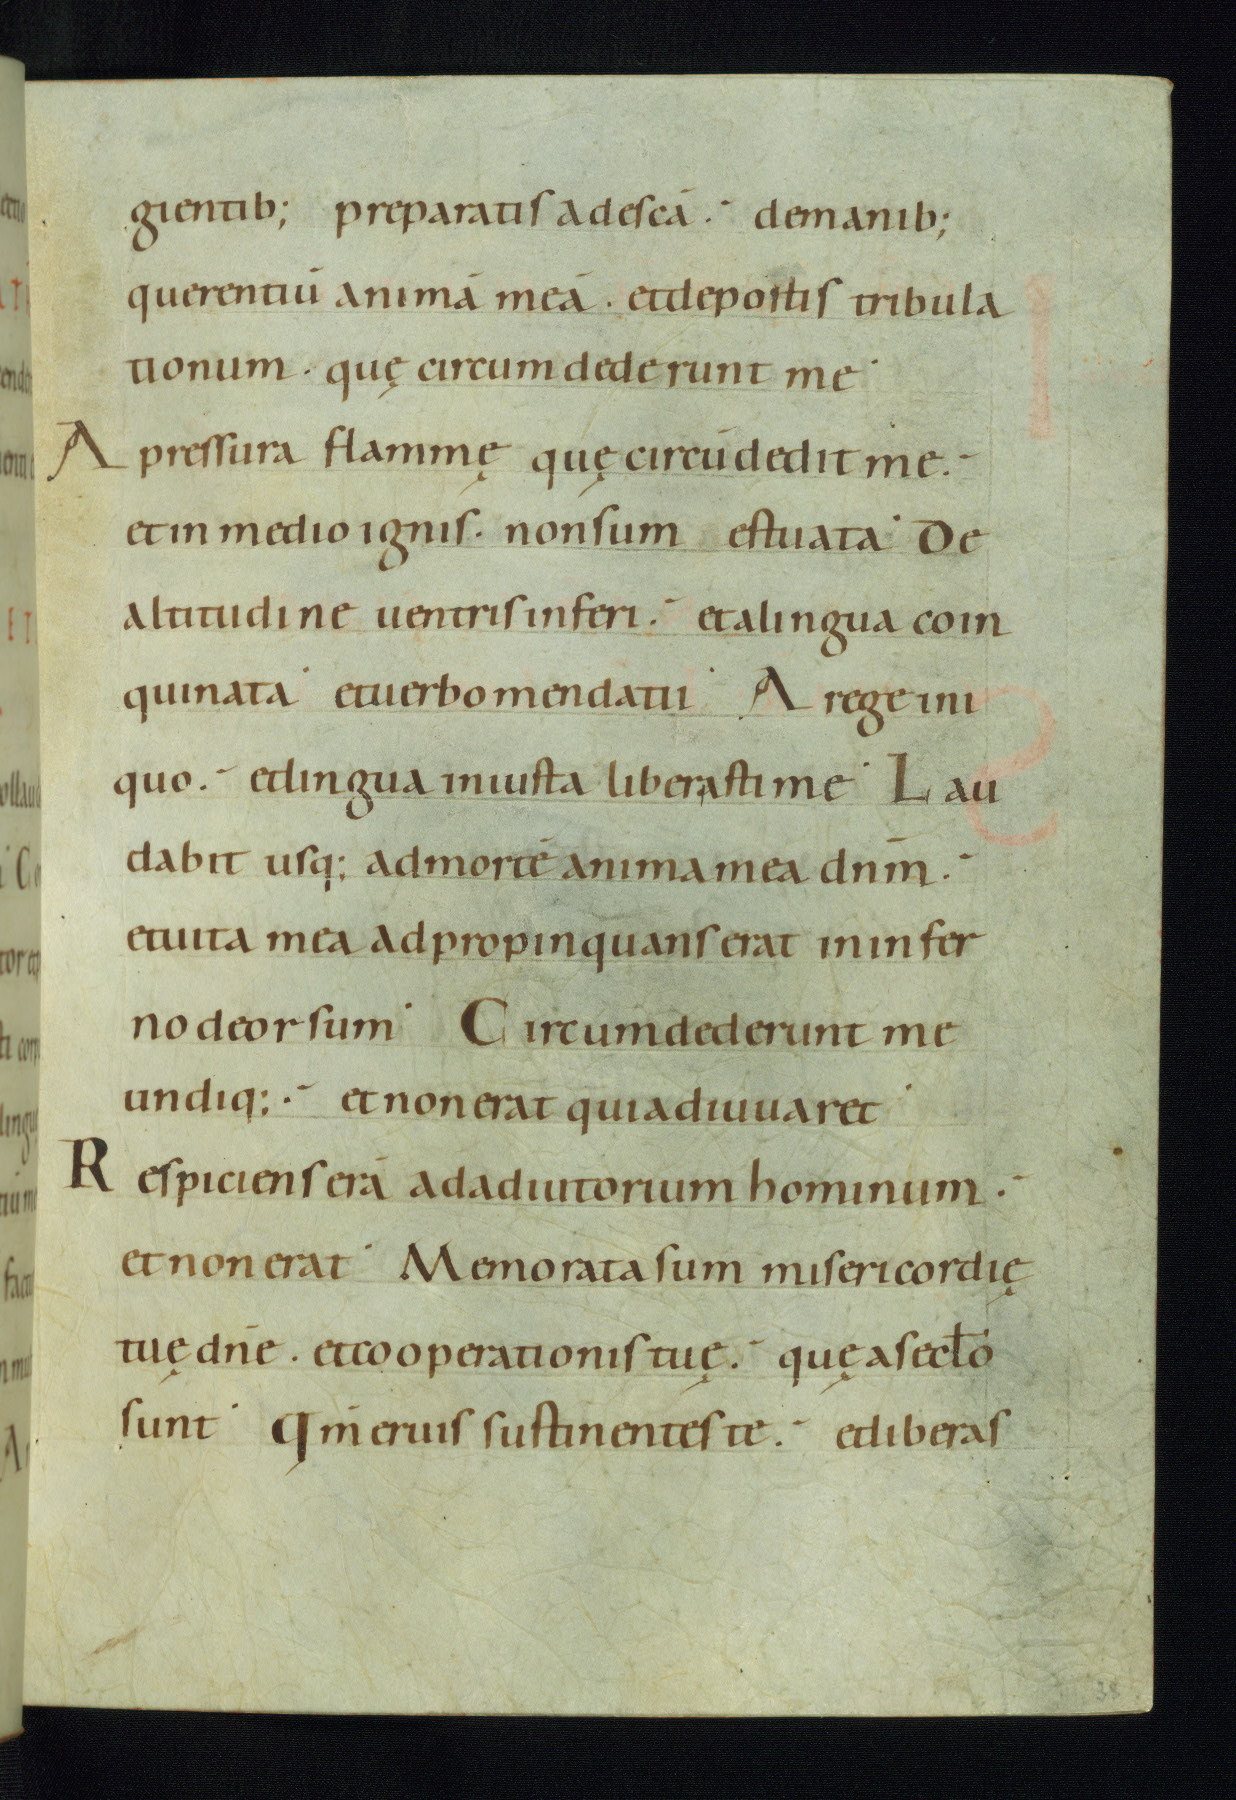 gientib; preparatis ad escā. de manib;
querentiū animā meā. et de portis tribula
tionum. quę circumdederunt me
A pressura flammę quę circūdedit me.
et in medio ignis. non sum estuata De
altitudine uentris inferi. et a lingua coin
quinata et uerbo mendatii A rege ini
quo. et lingua iniusta liberasti me Lau
dabit usq; ad mortē anima mea dnm̄.
et uita mea adpropinquans erat in infer
no deorsum Circumdederunt me
undiq;. et non erat qui adiuuaret
Respiciens erā ad adiutorium hominum.
et non erat Memorata sum misericordię
tuę dnē. et cooperationis tuę. quę a secłō
sunt Qm̄ eruis sustinentes te. et liberas
38